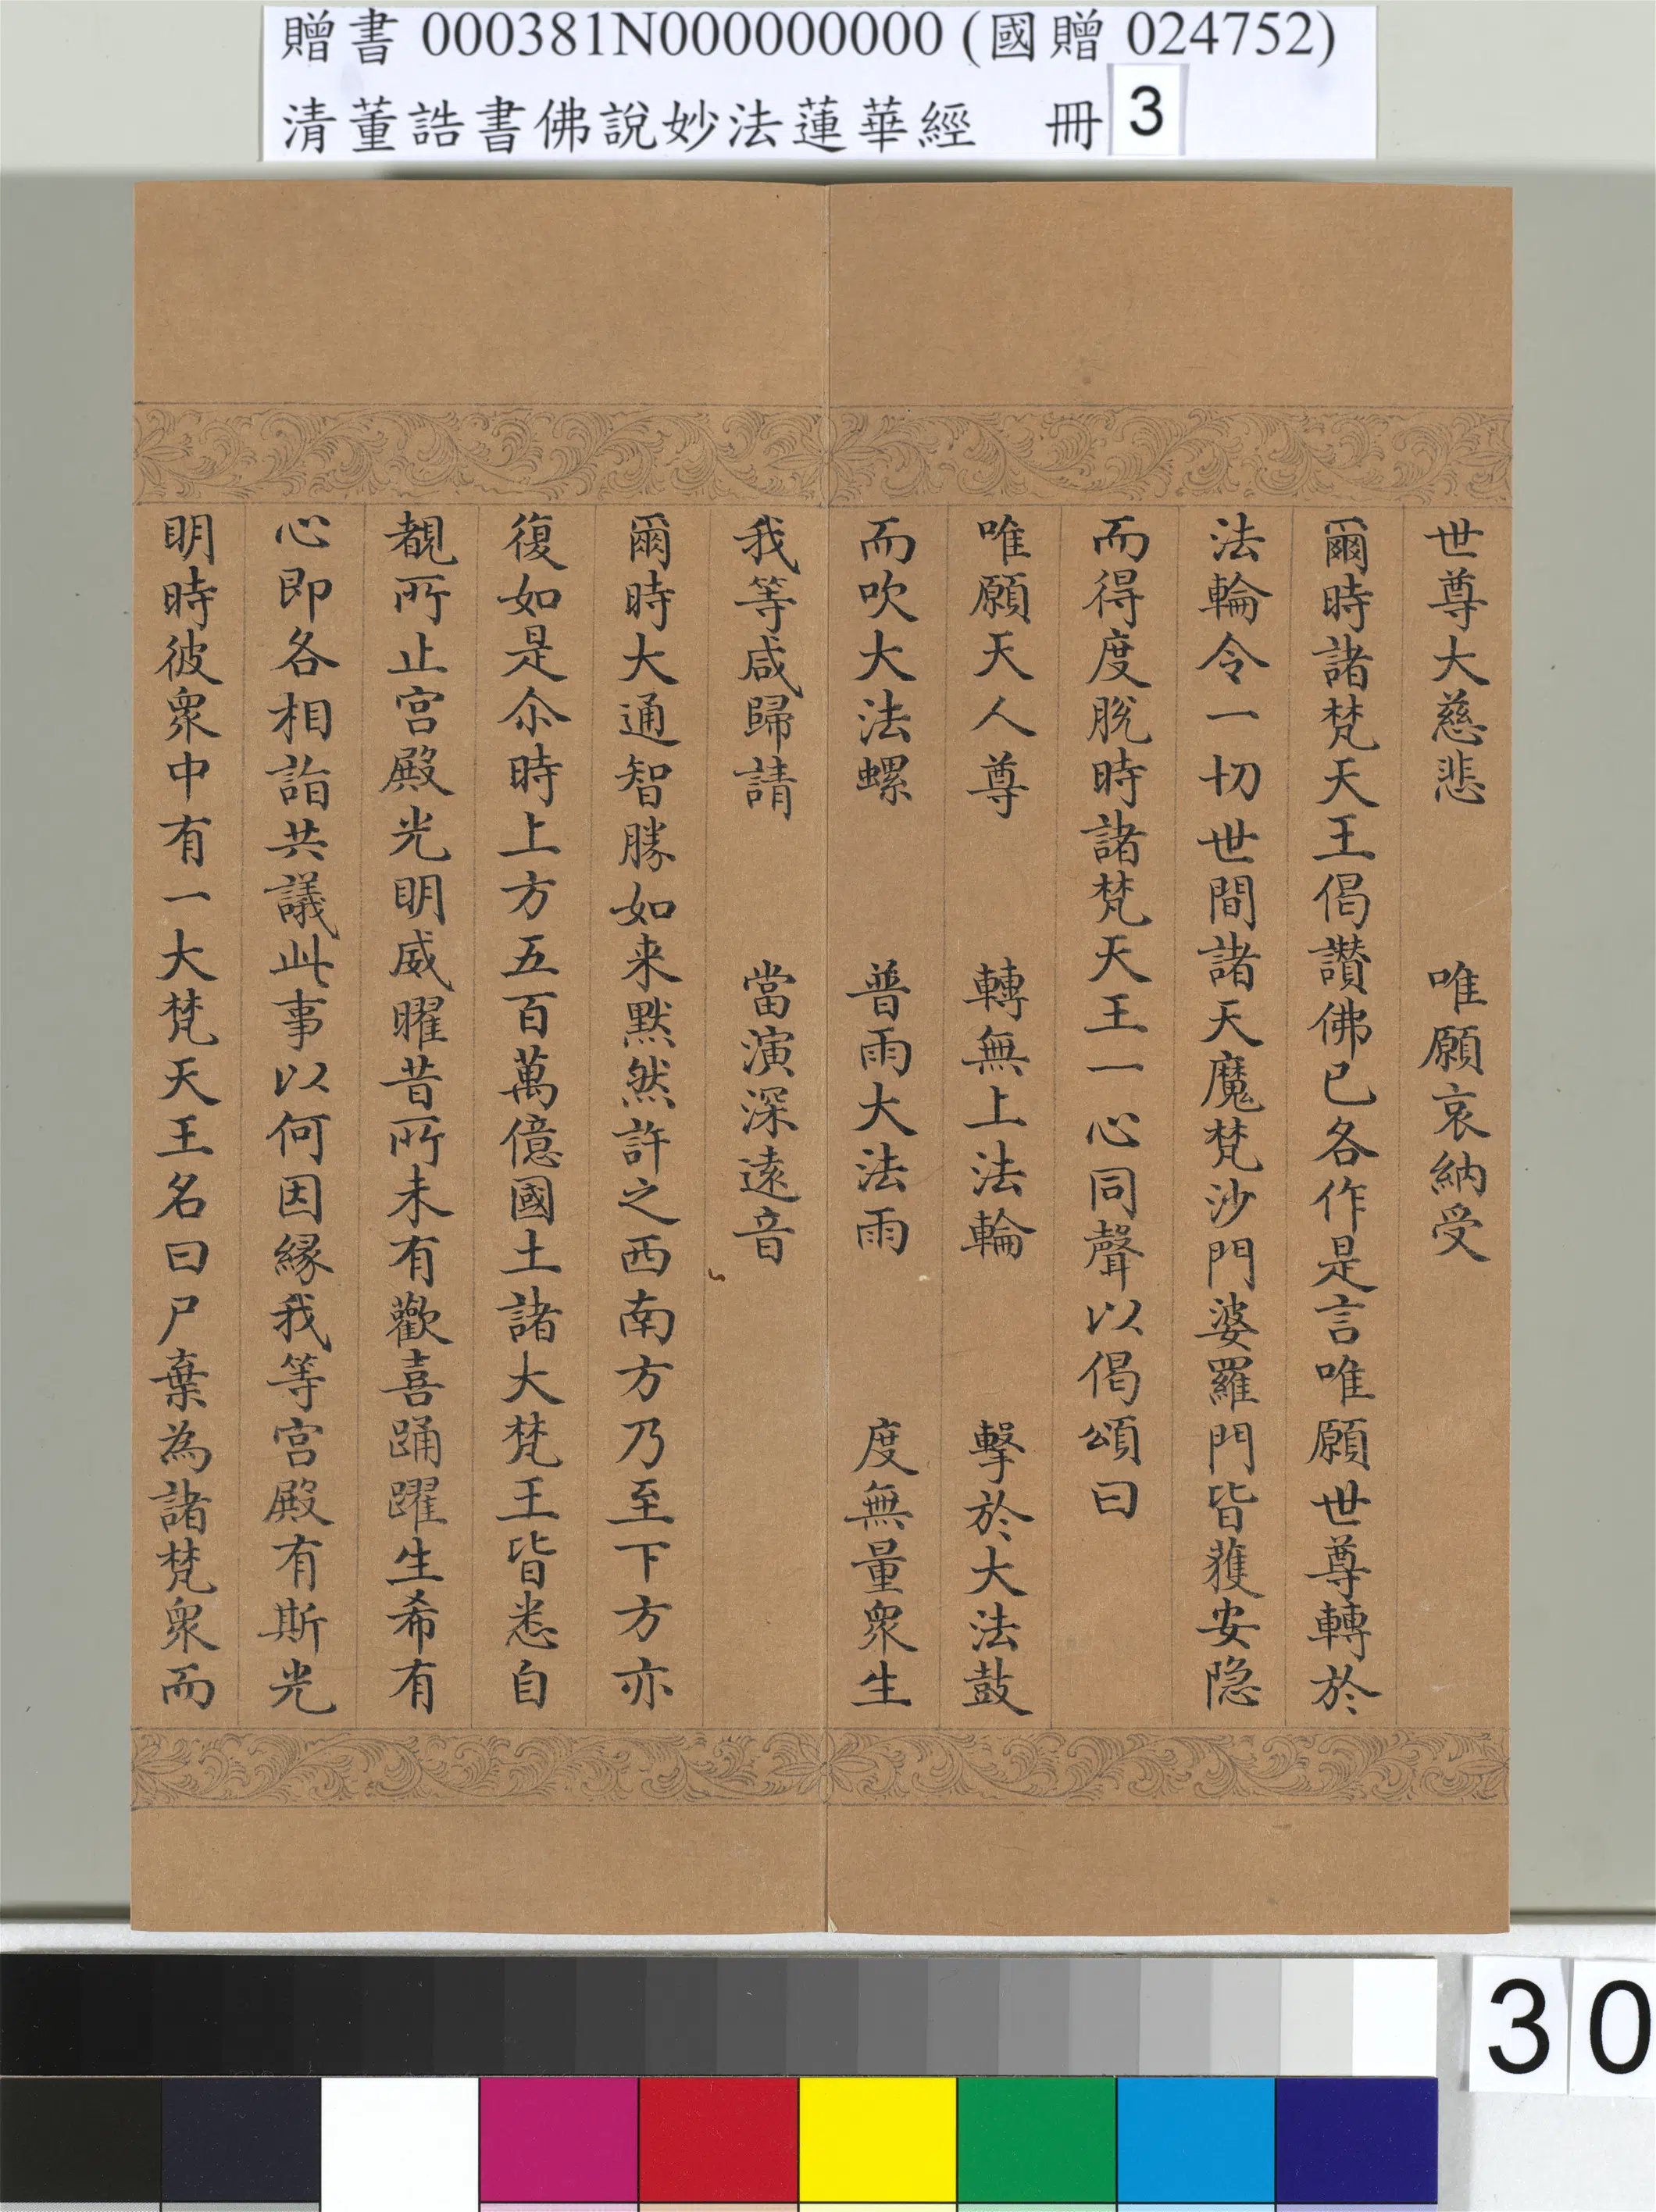 贈書 000381N000000000 (國贈 024752)
清董誥書佛說妙法蓮華經 冊 3
世尊大慈悲 唯願哀納受
爾時諸梵天王偈讃佛已各作是言唯願世尊轉於
法輪令一切世間諸天魔梵沙門婆羅門皆獲安隐
而得度脫時諸梵天王一心同聲以偈頌曰
唯願天人尊 轉無上法輪 擊於大法鼓
而吹大法螺 普雨大法雨 度無量眾生
我等咸歸請 當演深遠音
爾時大通智勝如来默然許之西南方乃至下方亦
復如是尒時上方五百萬億國土諸大梵王皆悉自
覩所止宮殿光明威曜昔所未有歡喜踊躍生希有
心即各相詣共議此事以何因緣我等宮殿有斯光
明時彼眾中有一大梵天王名曰尸棄為諸梵眾而
30